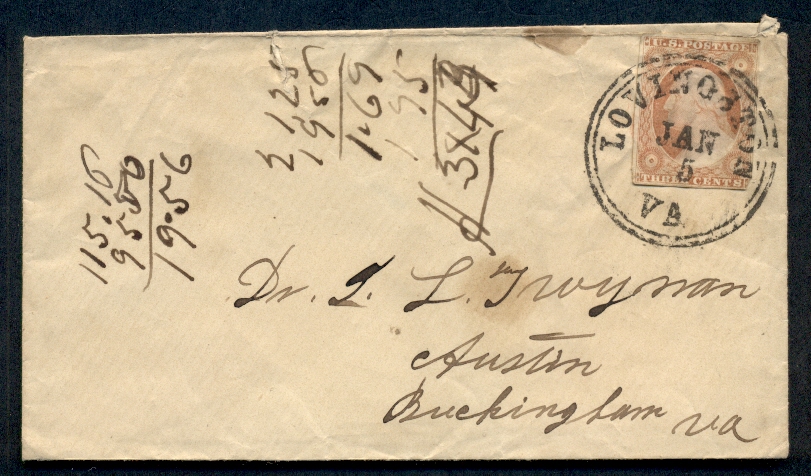 U.S. POSTAGE
THREE CENTS
LOVINGSTON
JAN
5
VA
115.16
95
19.56
2 125
1.69
195
Dr. L. Twyman
Austin
Buckingham va